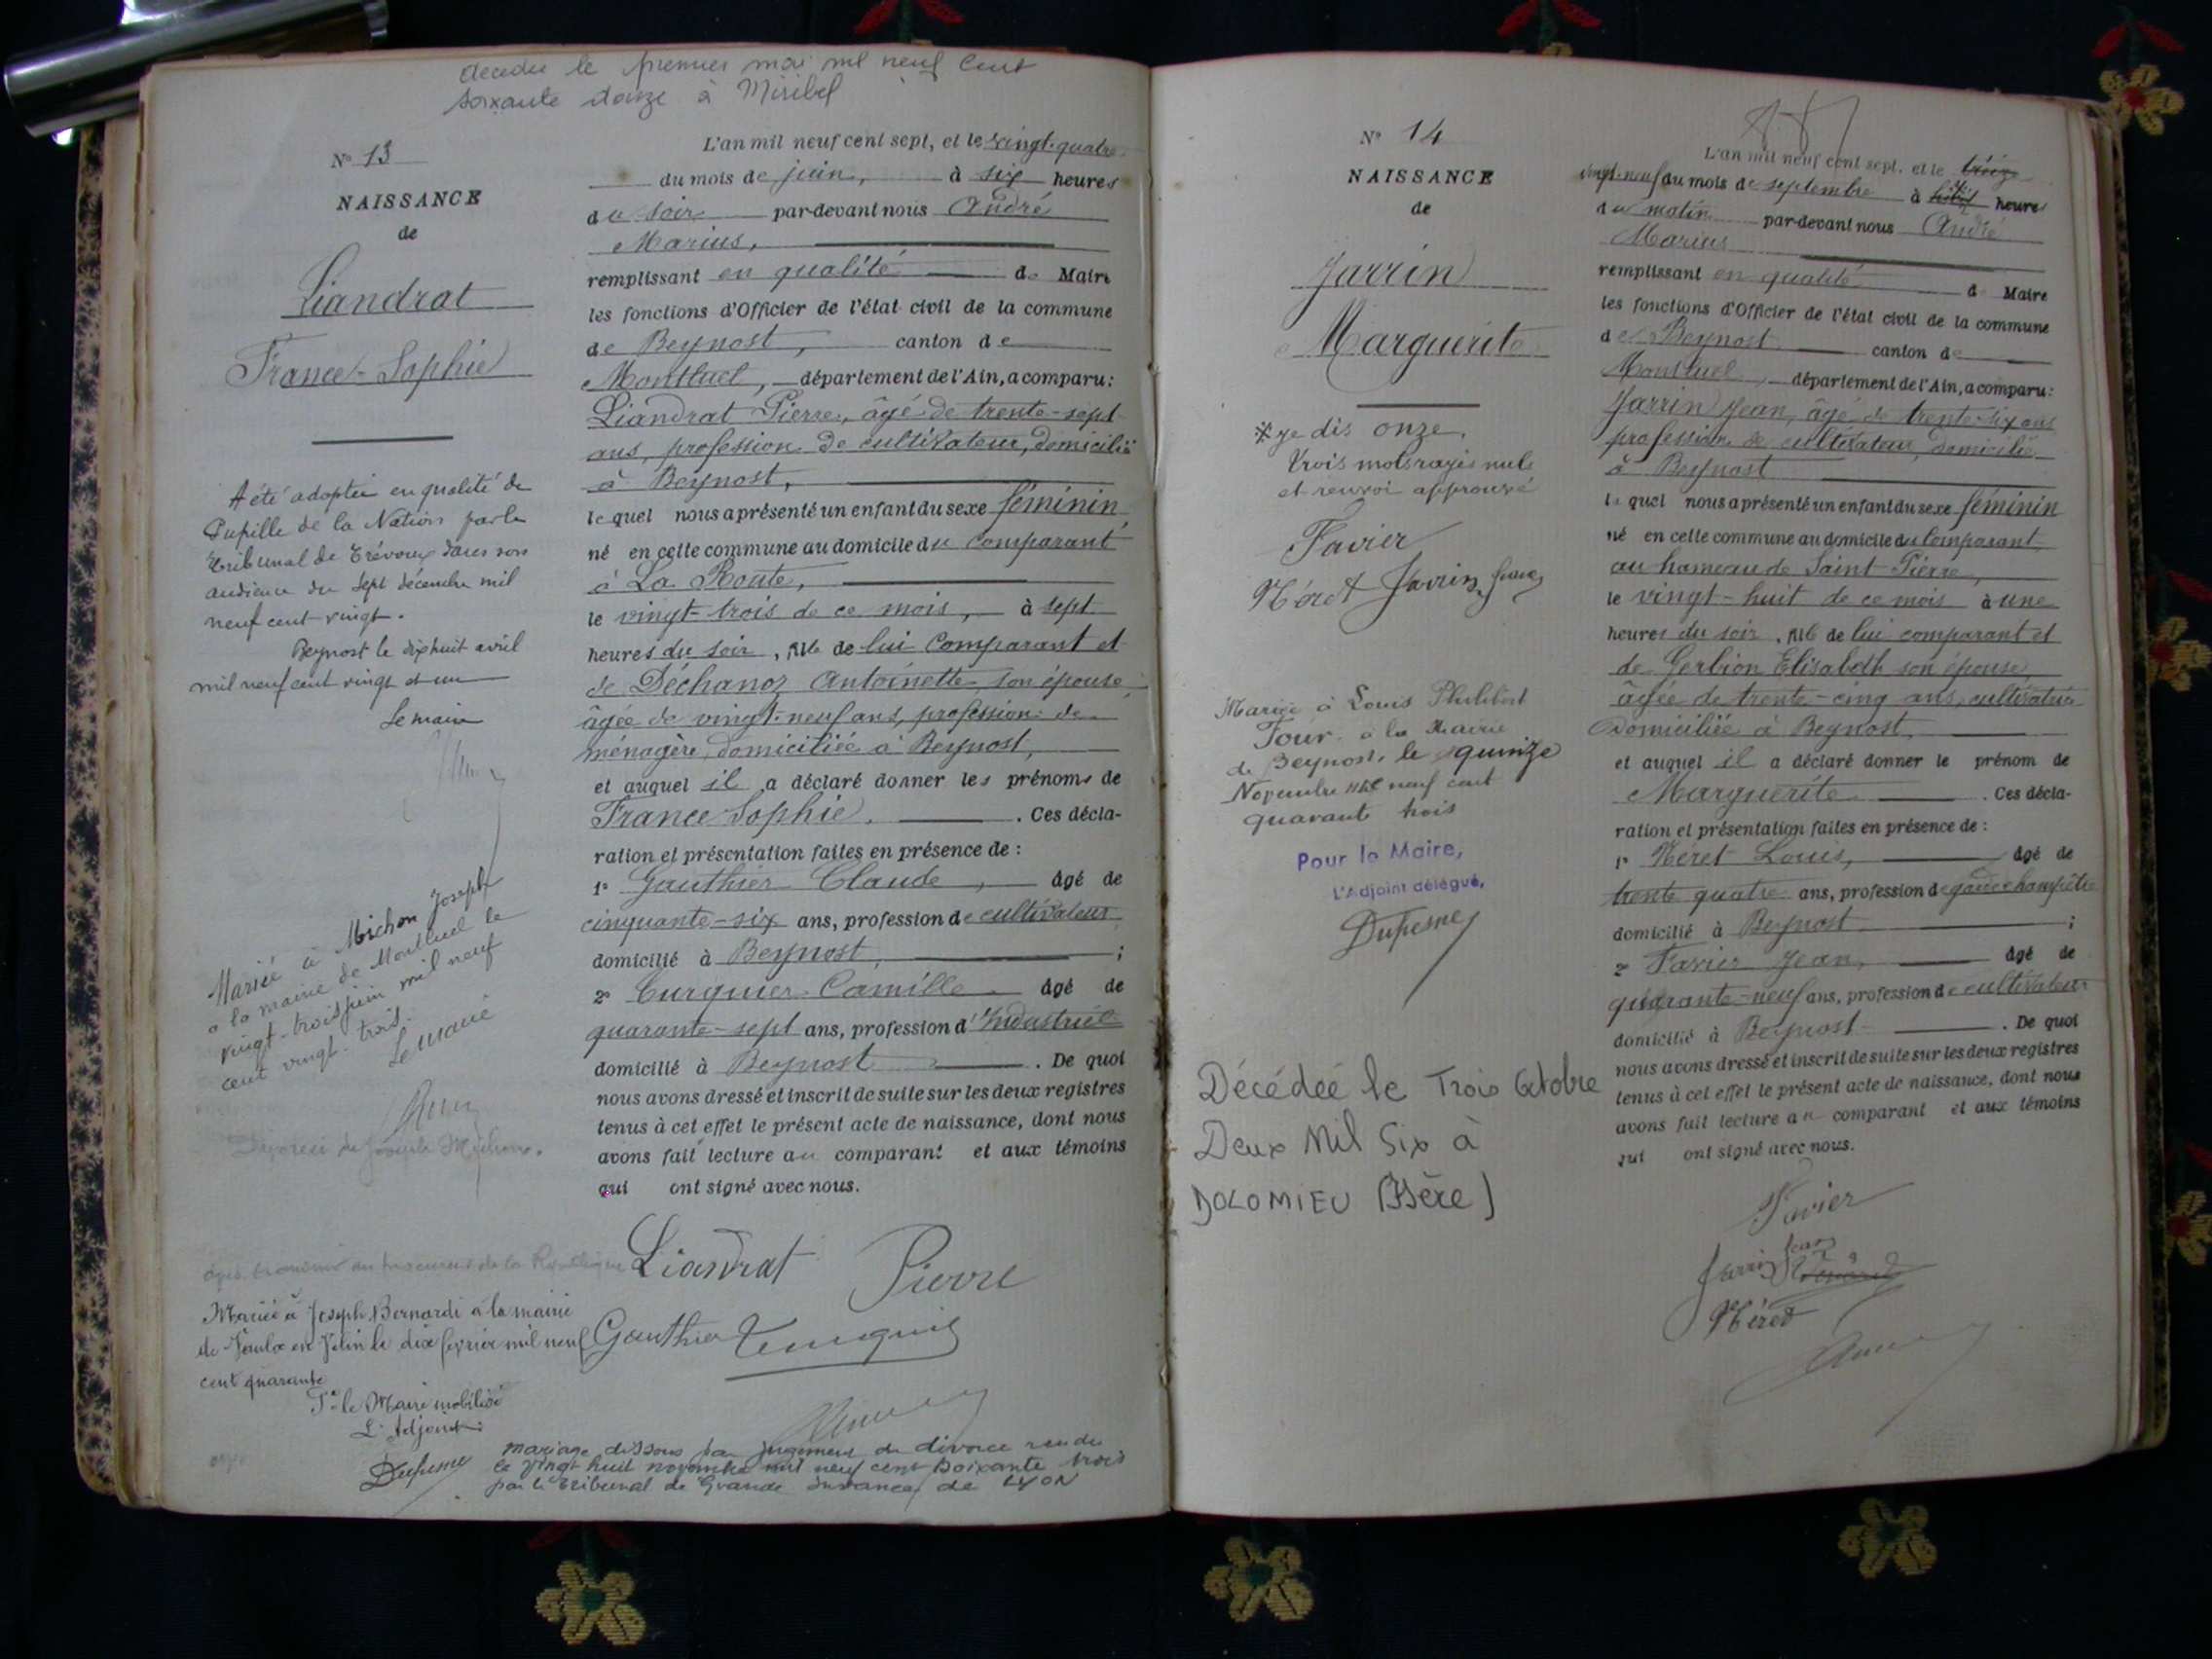 decedee le premier mai mil neuf cent
soixante douze à Miribel
N° 13
NAISSANCE
de
Liandrat
France-Sophie
A été adoptée en qualité de
Pupille de la Nation par le
Tribunal de Trévoux dans son
audience du sept décembre mil
neuf cent vingt.
Beynost le dix huit avril
mil neuf cent vingt et un
Le maire
Mariée à Michon Joseph
a la mairie de Montluel le
vingt-trois juin mil neuf
cent vingt-trois.
Le maire
Divorcée de Joseph Michon.
Mariée à Joseph Bernardi à la mairie
de Vaulx en Velin le dix février mil neuf
cent quarante
Pr le Maire mobilisé
L'Adjoint:
Dufesne
L'an mil neuf cent sept, et le vingt-quatre
du mois de juin, à six heures
du soir par-devant nous André
Marius,
remplissant en qualité de Maire
les fonctions d'Officier de l'état civil de la commune
de Beynost, canton de
Montluel, département de l'Ain, a comparu:
Liandrat Pierre, âgé de trente-sept
ans, profession de cultivateur, domicilié
à Beynost,
lequel nous a présenté un enfant du sexe féminin
né en cette commune au domicile du comparant
à La Route,
le vingt-trois de ce mois, à sept
heures du soir, fille de lui comparant et
de Déchanoz Antoinette, son épouse
âgée de vingt-neuf ans, profession de
ménagère, domiciliée à Beynost,
et auquel il a déclaré donner les prénoms de
France Sophie. . Ces décla-
ration et présentation faites en présence de :
1° Gauthier Claude, âgé de
cinquante-six ans, profession de cultivateur
domicilié à Beynost, ;
2° Curquier Camille âgé de
quarante-sept ans, profession d'Industriel
domicilié à Beynost . De quoi
nous avons dressé et inscrit de suite sur les deux registres
tenus à cet effet le présent acte de naissance, dont nous
avons fait lecture au comparant et aux témoins
qui ont signé avec nous.
Liandrat Pierre
Gauthier
mariage dissous par jugement de divorce rendu
le vingt huit novembre mil neuf cent soixante trois
par le tribunal de Grande instance de LYON
N° 14
NAISSANCE
de
Jarrin
Marguerite
* je dis onze.
Trois mots rayés nuls
et renvoi approuvé
Favier
Néret Jarrin Jean
Mariée à Louis Philibert
Tour à la Mairie
de Beynost, le quinze
Novembre mil neuf cent
quarante trois
Pour le Maire,
L'Adjoint délégué,
Dufesne
Décédée le Trois Octobre
Deux Mil Six à
DOLOMIEU (Isère)
L'an mil neuf cent sept, et le treize
vingt-neuf du mois de septembre à heures
du matin par-devant nous André
Marius
remplissant en qualité de Maire
les fonctions d'Officier de l'état civil de la commune
de Beynost canton de
Montluel, département de l'Ain, a comparu:
Jarrin Jean, âgé de trente-six ans
profession de cultivateur, domicilié
à Beynost
lequel nous a présenté un enfant du sexe féminin
né en cette commune au domicile du comparant
au hameau de Saint Pierre,
le vingt-huit de ce mois à une
heures du soir, fille de lui comparant et
de Gerbion Elisabeth son épouse,
âgée de trente-cinq ans, cultivatrice
domiciliée à Beynost,
et auquel il a déclaré donner le prénom de
Marguerite . Ces décla-
ration et présentation faites en présence de :
1° Néret Louis, âgé de
trente quatre ans, profession de garde champêtre
domicilié à Beynost ;
2° Favier Jean, âgé de
quarante-neuf ans, profession de cultivateur
domicilié à Beynost . De quoi
nous avons dressé et inscrit de suite sur les deux registres
tenus à cet effet le présent acte de naissance, dont nous
avons fait lecture au comparant et aux témoins
qui ont signé avec nous.
Favier
Jarrin Jean
Néret